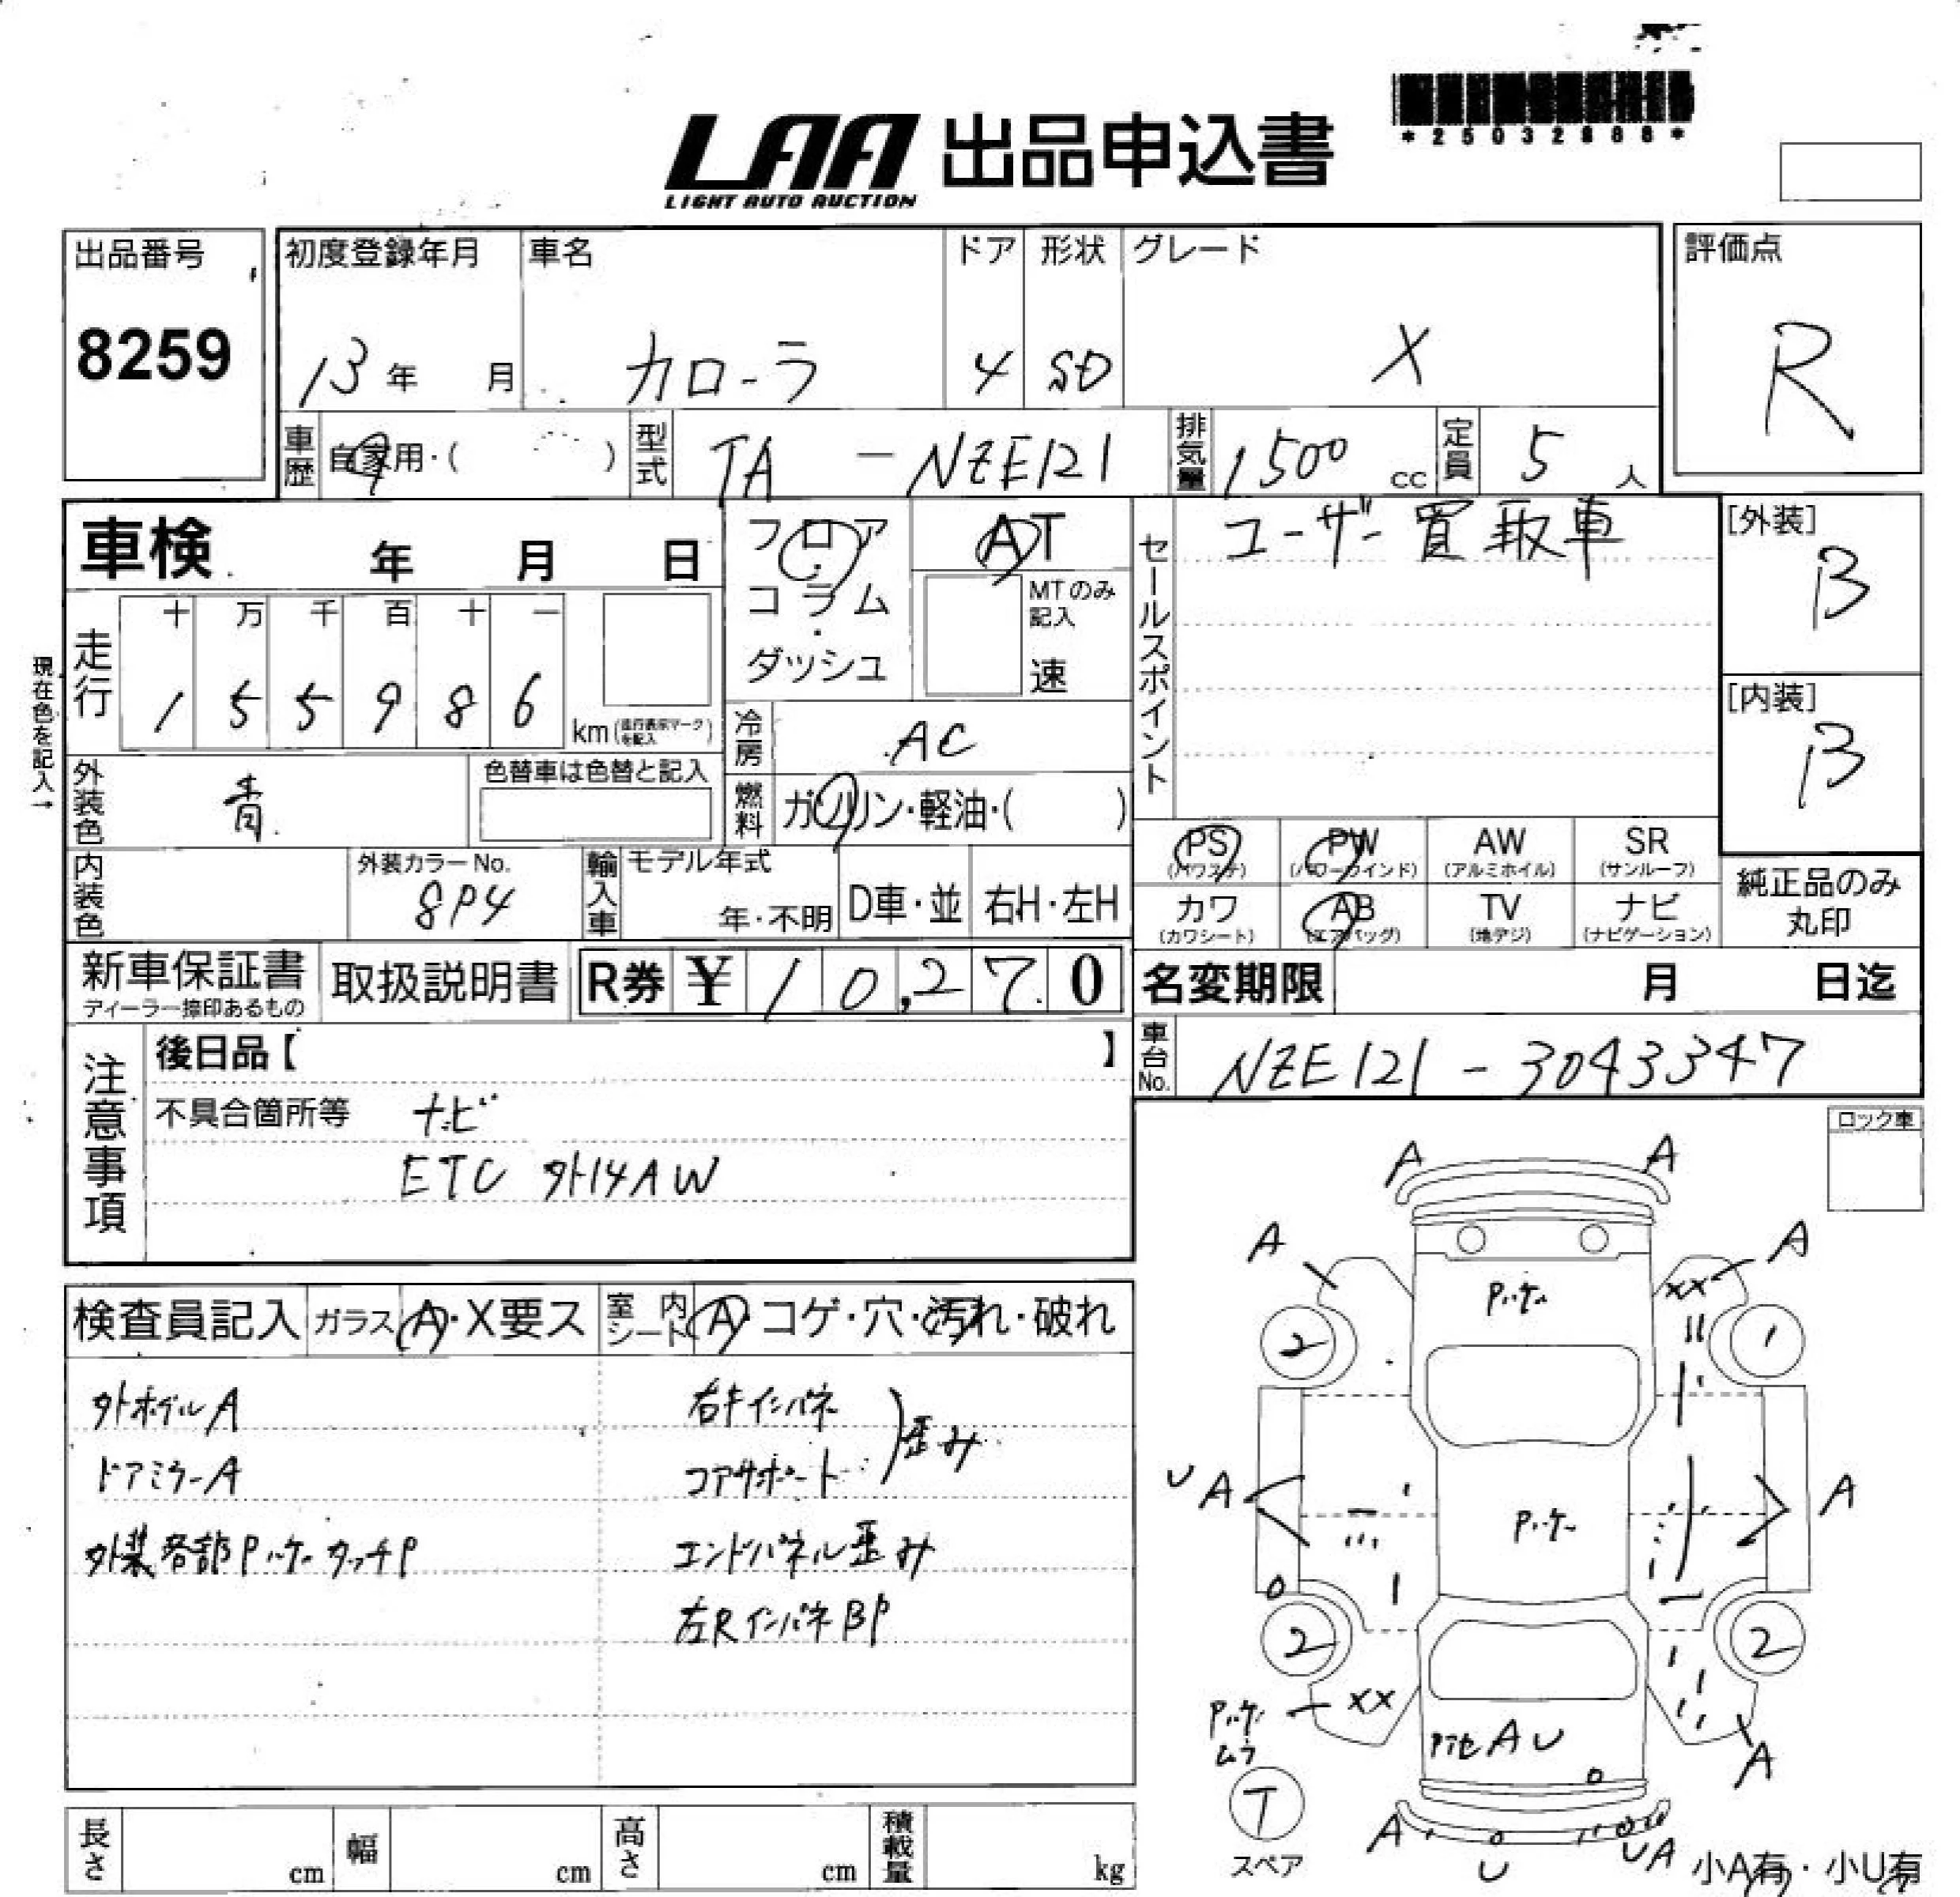 *25032888*
LAA 出品申込書
LIGHT AUTO AUCTION
出品番号
8259
初度登録年月
13年 月
車名
カローラ
ドア
4
形状
SD
グレード
X
評価点
R
車歴 自家用・( )
型式 TA - NZE121
排気量 1500 cc
定員 5 人
車検 年 月 日
フロア・コラム・ダッシュ
AT
MTのみ記入
速
セールスポイント
ユーザー買取車
[外装]
B
[内装]
B
現在色を記入→
走行
十 万 千 百 十 一
1 5 5 9 8 6
km(走行表示マークを記入)
冷房 AC
外装色 青
色替車は色替と記入
燃料 ガソリン・軽油・( )
内装色
外装カラーNo.
8P4
輸入車 モデル年式
年・不明
D車・並
右H・左H
PS (パワステ)
PW (パワーウインド)
AW (アルミホイル)
SR (サンルーフ)
カワ (カワシート)
AB (エアバッグ)
TV (地デジ)
ナビ (ナビゲーション)
純正品のみ丸印
新車保証書
ディーラー捺印あるもの
取扱説明書
R券 ¥ 10,270
名変期限 月 日迄
車台No. NZE121-3043347
注意事項
後日品【 】
不具合箇所等 ナビ
ETC 外14AW
ロック車
検査員記入
ガラス A・X要ス
室内シート A・コゲ・穴・汚れ・破れ
外ホイルA
ドアミラーA
外装各部Pハケ タッチP
右Fインパネ
コアサポート
歪み
エンドパネル歪み
左RインパネBP
A
A
A
A
XX
Pハケ
2
1
UA
A
Pハケ
2
2
Pハケ
ムラ
XX
AU
A
T
スペア
A
U
UA
小A有・小U有
長さ cm
幅 cm
高さ cm
積載量 kg